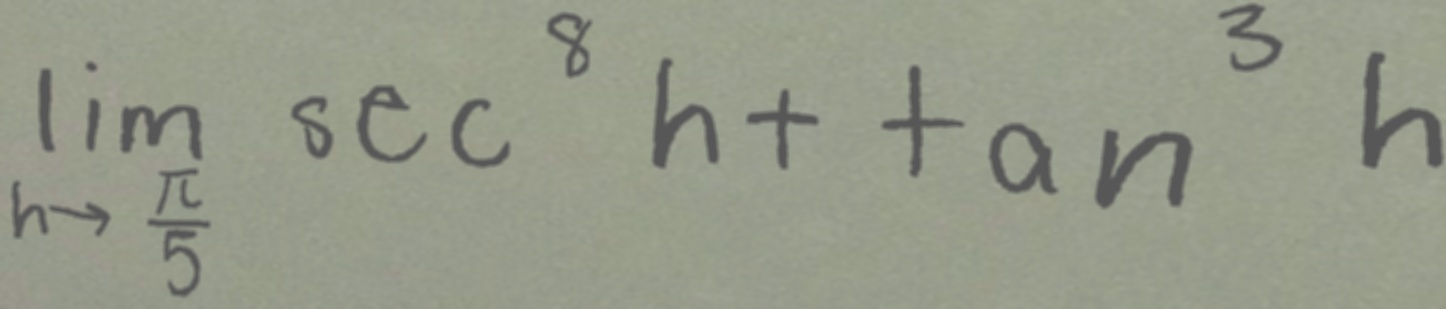 \lim_{h \to \frac{\pi}{5}} \sec^8 h + \tan^3 h